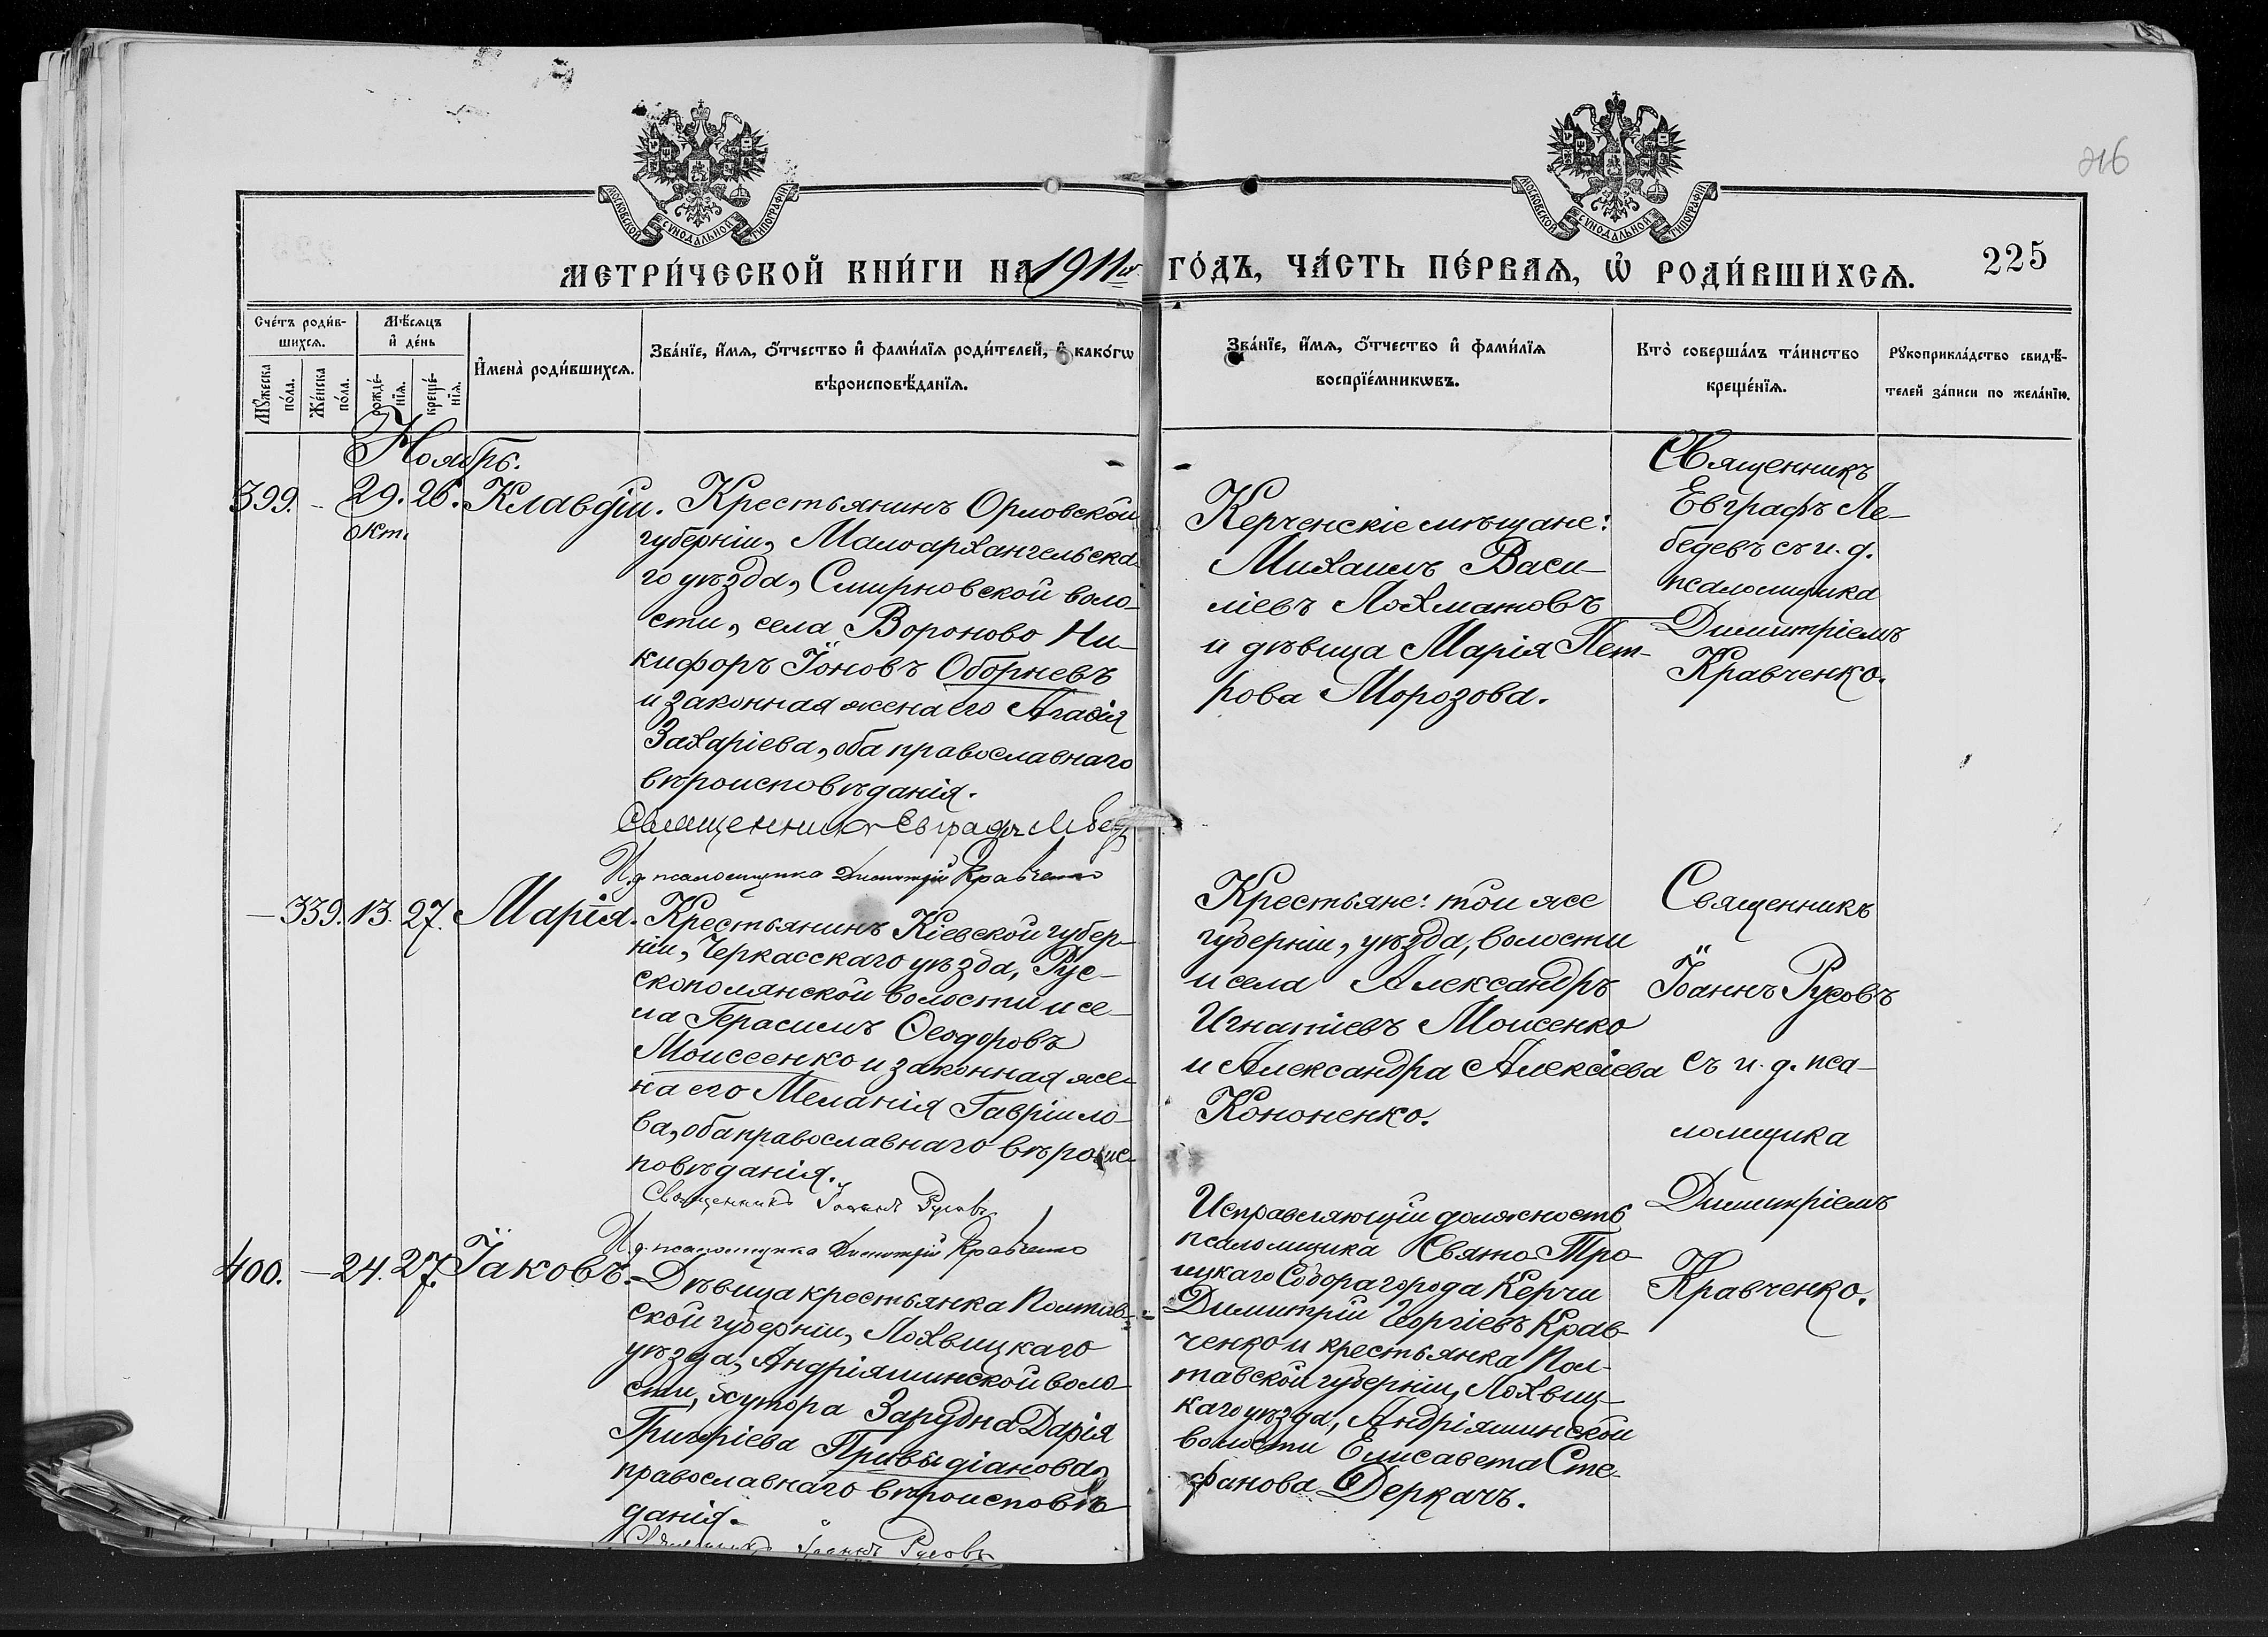 216
МОСКОВСКОЙ СУНОДАЛЬНОЙ ТИПОГРАФІИ
МОСКОВСКОЙ СУНОДАЛЬНОЙ ТИПОГРАФІИ
МЕТРИ́ЧЕСКОЙ КНИ́ГИ НА 1911й ГО́ДЪ, ЧА́СТЬ ПЕ́РВАѦ, Ѡ РОДИ́ВШИХСѦ.
225
Сче́тъ роди́в-
шихсѧ.
Мѣ́сѧцъ
и҆ де́нь
Мꙋ́жеска
по́ла.
Же́нска
по́ла.
рожде́-
нїѧ.
креще́-
нїѧ.
И҆мена̀ роди́вшихсѧ.
Зва́нїе, и҆́мѧ, ѻ҆́тчество и҆ фами́лїѧ роди́телей, и҆ како́гѡ
вѣроисповѣ́данїѧ.
Зва́нїе, и҆́мѧ, ѻ҆́тчество и҆ фами́лїѧ
воспрїе́мникѡвъ.
Кто̀ соверша́лъ та́инство
креще́нїѧ.
Рꙋкоприкла́дство свидѣ́-
телей за́писи по жела́нїю.
Ноябрь.
399. - 29. 26. Клавдій.
Окт.
Крестьянинъ Орловской
губерніи, Малоархангельска-
го уѣзда, Смирновской воло-
сти, села Вороново Ни-
кифоръ Іоновъ Оборневъ
и законная жена его Агаѳія
Захаріева, оба православнаго
вѣроисповѣданія.
Священникъ Евграфъ Лебед
И. д. псаломщика Димитрій Кравченко
Керченскіе мѣщане:
Михаилъ Васи-
ліевъ Лохматовъ
и дѣвица Марія Пет-
рова Морозова.
Священникъ
Евграфъ Ле-
бедевъ съ и. д.
псаломщика
Димитріемъ
Кравченко.
- 339. 13. 27. Марія.
Крестьянинъ Кіевской губер-
ніи, Черкасскаго уѣзда, Рус-
скополянской волости и се-
ла Герасимъ Ѳеодоровъ
Моисеенко и законная же-
на его Меланія Гавріило-
ва, оба православнаго вѣроис-
повѣданія.
Священникъ Іоаннъ Русовъ
И. д. псаломщика Димитрій Кравченко
Крестьяне: той же
губерніи, уѣзда, волости
и села Александръ
Игнатіевъ Моисенко
и Александра Алексіева
Кононенко.
Священникъ
Іоаннъ Русовъ
съ и. д. пса-
ломщика
Димитріемъ
Кравченко.
400. - 24. 27. Іаковъ.
Дѣвица крестьянка Полтав-
ской губерніи, Лохвицкаго
уѣзда, Андріяшинской воло-
сти, хутора Зарудна Дарія
Григоріева Привыдіанова,
православнаго вѣроисповѣ-
данія.
Священникъ Іоаннъ Русовъ
Исправляющій должность
псаломщика Свято-Тро-
ицкаго Собора города Керчи
Димитрій Георгіевъ Крав-
ченко и крестьянка Пол-
тавской губерніи, Лохвиц-
каго уѣзда, Андріяшинской
волости Елисавета Сте-
фанова Деркачъ.